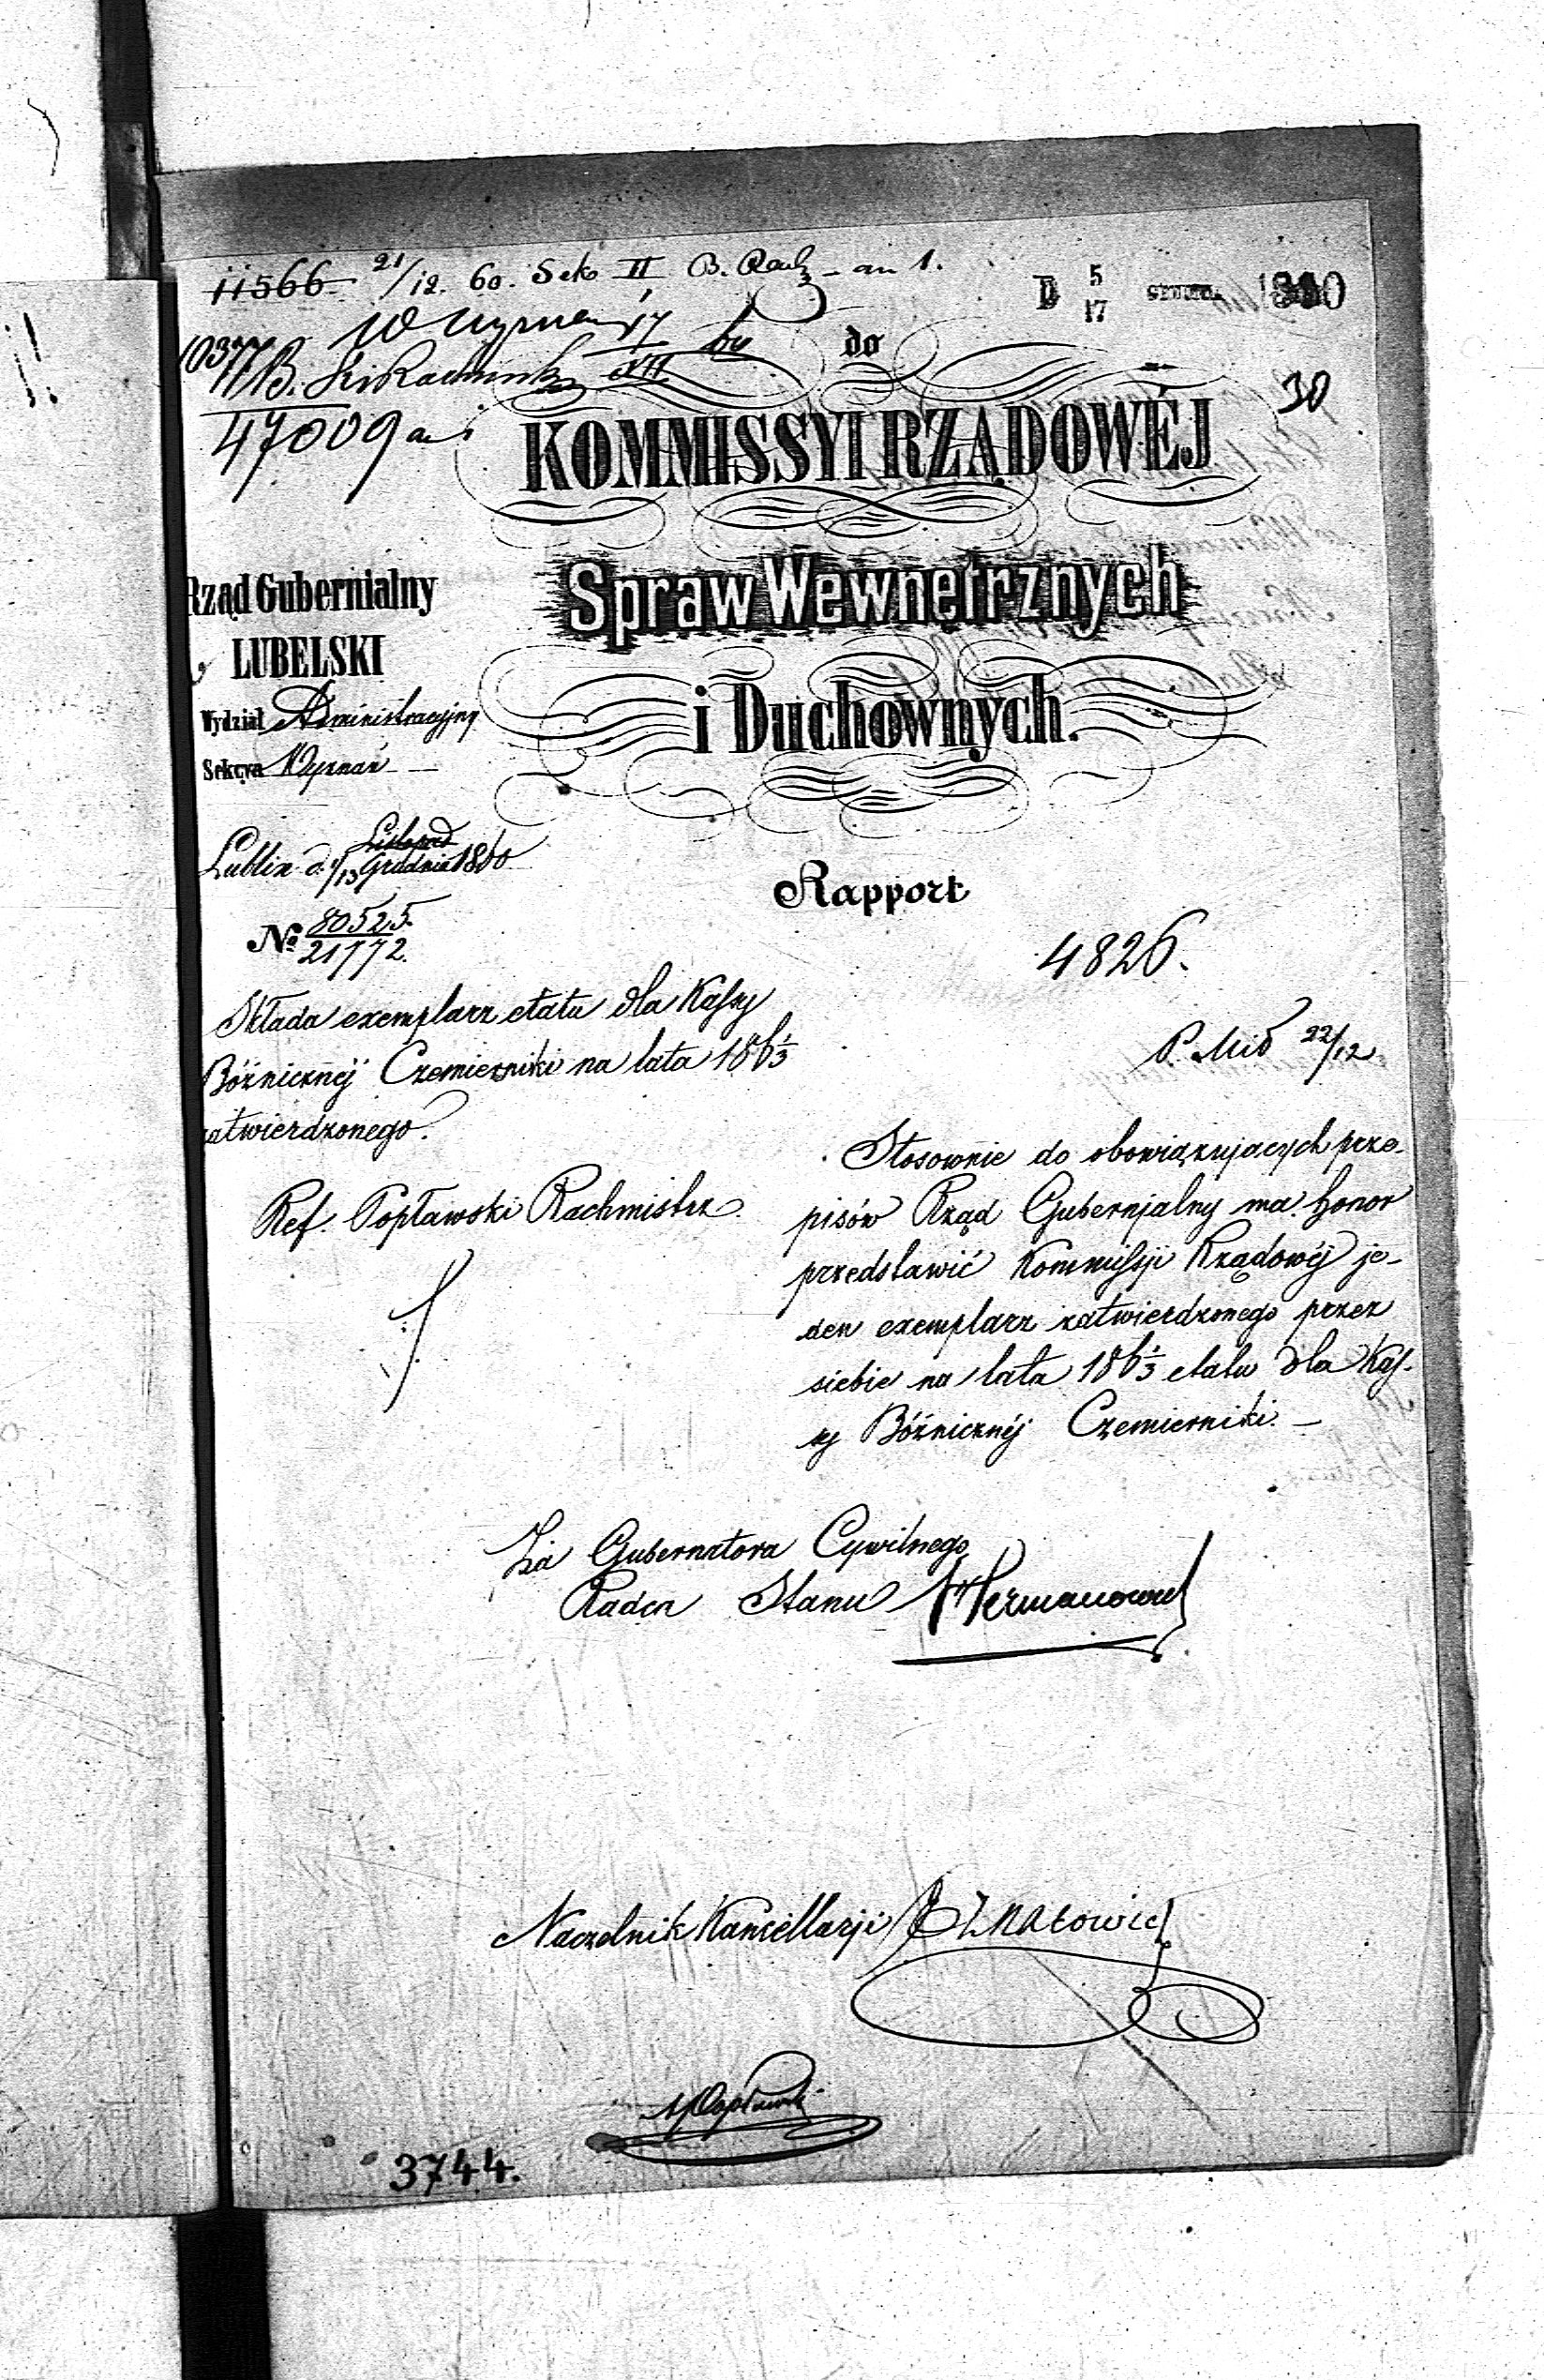 11566 21/12. 60. Sek II B. Rach - an 1.
D 5/17 1860
W Wyznań 17/XII
do
10377
47009 an 1
30
KOMMISSYI RZĄDOWÉJ
Spraw Wewnętrznych
i Duchownych.
Rząd Gubernialny
LUBELSKI
Wydział Administracyjny
Sekcya Wyznań
Lublin d. 1/13 Listopad Grudnia 1860
Rapport
No 80525.
21772.
4826.
Składa exemplarz etatu dla Kassy
Bóżnicznéj Czemierniki na lata 186 1/3
zatwierdzonego.
P. Mió 22/12
Ref. Popławski Rachmistrz
Stosownie do obowiązujących prze-
pisów Rząd Gubernjalny ma honor
przedstawić Kommissji Rządowéj je-
den exemplarz zatwierdzonego przez
siebie na lata 186 1/3 etatu dla Kas-
sy Bóżnicznéj Czemierniki. —
Za Gubernatora Cywilnego
Radca Stanu
Naczelnik Kancellarji
MPopławski
3744.